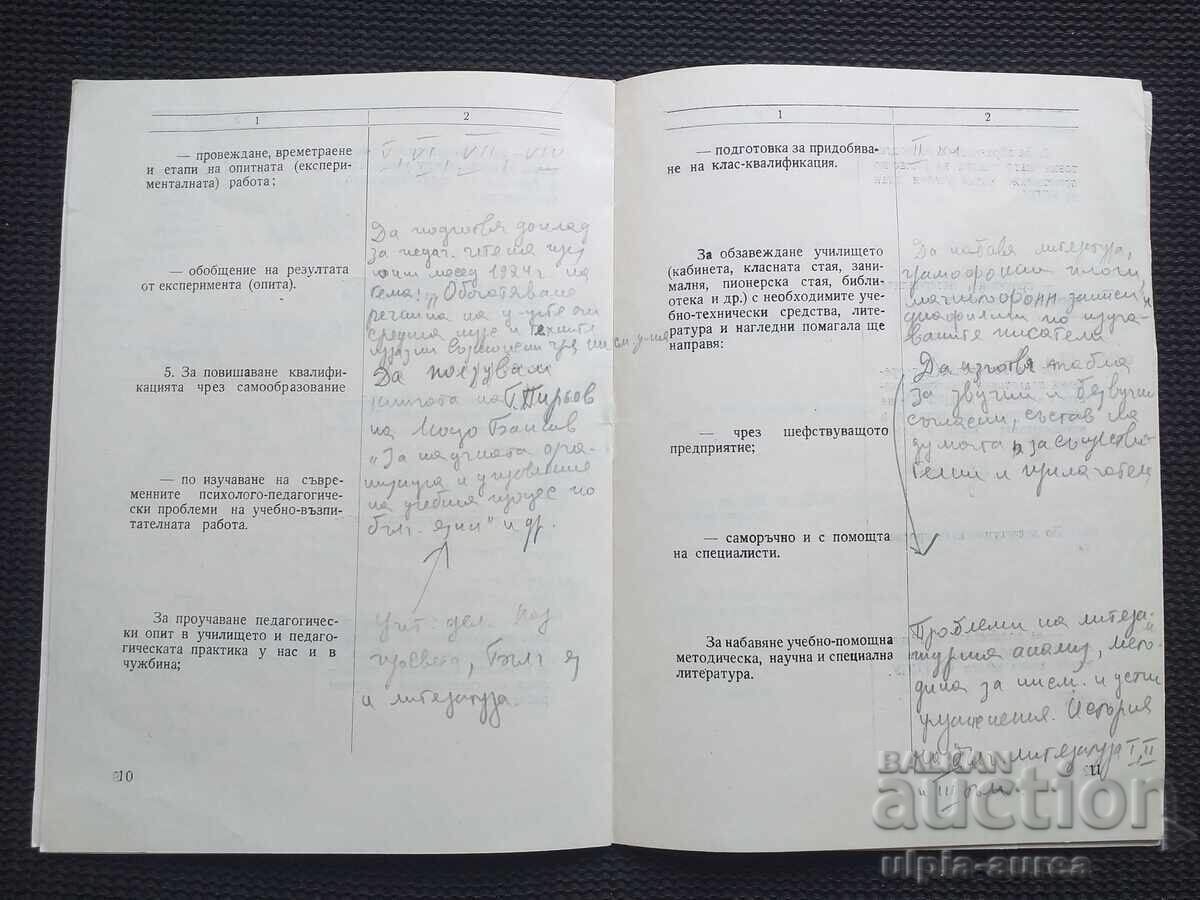 1 2
— провеждане, времетраене
и етапи на опитната (експери-
менталната) работа;
V, VI, VII, VIII
— обобщение на резултата
от експеримента (опита).
Да подготвя доклад
за педаг. четения през
1984 г. на
тема: „Обогатяване
речника на у-ците от
средния курс и техните
5. За повишаване квалифи-
кацията чрез самообразование
— по изучаване на съвре-
менните психолого-педагогиче-
ски проблеми на учебно-възпи-
тателната работа.
Да ползувам
книгата на Г. Пирьов
на Моцо Банков
„За научната орга-
и управление
на учебния процес по
бълг. език" и др.
За проучаване педагогиче-
ски опит в училището и педаго-
гическата практика у нас и в
чужбина;
Учит. дело, Нар.
просвета, Бълг. ез.
и литература.
10
1 2
— подготовка за придобива-
не на клас-квалификация.
II
За обзавеждане училището
(кабинета, класната стая, зани-
малня, пионерска стая, библи-
отека и др.) с необходимите уче-
бно-технически средства, лите-
ратура и нагледни помагала ще
направя:
Да набавя литература,
грамофонни плочи,
магнетофонни записи,
диафилми по изуча-
ваните писатели
— чрез шефствуващото
предприятие;
Да изготвя табла
за звучни и беззвучни
съгласни, състав на
думата, за съществи-
телни и прилагател
— саморъчно и с помощта
на специалисти.
За набавяне учебно-помощна
методическа, научна и специална
литература.
Проблеми на литера-
турния анализ, Мето-
дика за писм. и устни
упражнения. История
на бълг. литература I, II
и III
11
BALKAN
auction
ulpia-aurea